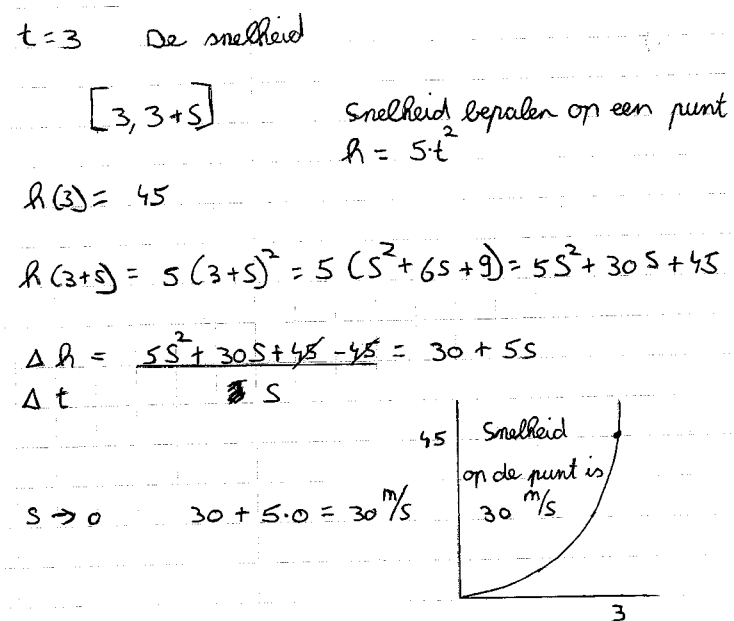 t = 3 De snelheid
[3, 3+S]
Snelheid bepalen op een punt
h = 5·t²
h(3) = 45
h(3+S) = 5(3+S)² = 5(S²+6S+9) = 5S²+30S+45
Δh = 5S²+30S+45-45 = 30+5S
Δt S
45
Snelheid
op de punt is
30 m/s
S → 0 30 + 5·0 = 30 m/s
3